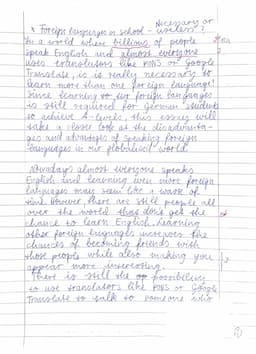 necessary or
* Foreign languages in school - useless?
In a world where billions of people
speak English and almost everyone
uses translators like PONS or Google
Translate, is is really necessary to
learn more than one foreign language?
Since learning foreign languages
is still required for German students
to achieve A-levels, this essay will
take a closer look at the disadvanta-
ges and advantages of speaking foreign
languages in our globalised world.
Nowadays almost everyone speaks
English and learning even more foreign
languages may seem like a waste of
time. However, there are still people all
over the world that don't get the
chance to learn English. Learning
other foreign languages increases the
chances of becoming friends with
those people while also making you
appear more interesting.
There is still the possibility
to use translators like PONS or Google
Translate to talk to someone who